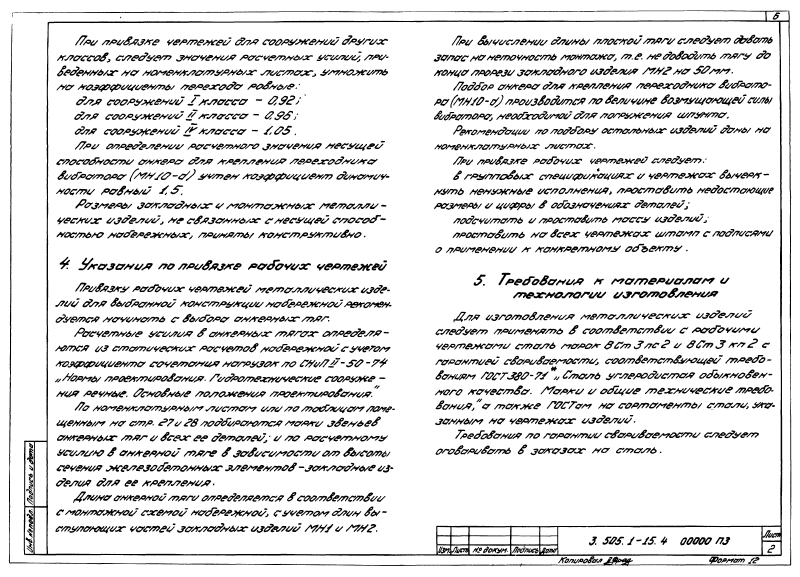 5
При привязке чертежей для сооружений других
классов, следует значения расчетных усилий, при-
веденных на номенклатурных листах, умножить
на коэффициенты перехода равные:
для сооружений I класса - 0.92;
для сооружений II класса - 0.96;
для сооружений IV класса - 1.05.
При определении расчетного значения несущей
способности анкера для крепления переходника
вибратора (МН10-d) учтен коэффициент динамич-
ности равный 1.5.
Размеры закладных и монтажных металли-
ческих изделий, не связанных с несущей способ-
ностью набережных, приняты конструктивно.
4. Указания по привязке рабочих чертежей
Привязку рабочих чертежей металлических изде-
лий для выбранной конструкции набережной рекомен-
дуется начинать с выбора анкерных тяг.
Расчетные усилия в анкерных тягах определя-
ются из статических расчетов набережной с учетом
коэффициента сочетания нагрузок по СНиП II-50-74
„Нормы проектирования. Гидротехнические сооруже-
ния речные. Основные положения проектирования."
По номенклатурным листам или по таблицам поме-
щенным на стр. 27 и 28 подбираются марки звеньев
анкерных тяг и всех ее деталей; и по расчетному
усилию в анкерной тяге в зависимости от высоты
сечения железобетонных элементов - закладные из-
делия для ее крепления.
Длина анкерной тяги определяется в соответствии
с монтажной схемой набережной, с учетом длин вы-
ступающих частей закладных изделий МН1 и МН2.
При вычислении длины плоской тяги следует давать
запас на неточность монтажа, т.е. не доводить тягу до
конца прорези закладного изделия МН2 на 50 мм.
Подбор анкера для крепления переходника вибрато-
ра (МН10-d) производится по величине возмущающей силы
вибратора, необходимой для погружения шпунта.
Рекомендации по подбору остальных изделий даны на
номенклатурных листах.
При привязке рабочих чертежей следует:
в групповых спецификациях и чертежах вычерк-
нуть ненужные исполнения, проставить недостающие
размеры и цифры в обозначениях деталей;
подсчитать и проставить массу изделий;
проставить на всех чертежах штамп с подписями
о применении к конкретному объекту.
5. Требования к материалам и
технологии изготовления
Для изготовления металлических изделий
следует применять в соответствии с рабочими
чертежами сталь марок ВСт 3 пс 2 и ВСт 3 кп 2 с
гарантией свариваемости, соответствующей требо-
ваниям ГОСТ 380-71* „Сталь углеродистая обыкновен-
ного качества. Марки и общие технические требо-
вания," а также ГОСТам на сортаменты стали, ука-
занным на чертежах изделий.
Требования по гарантии свариваемости следует
оговаривать в заказах на сталь.
Инв. № подл. Подпись и дата
Изм. Лист № докум. Подпись Дата
3. 505. 1-15. 4 00000 ПЗ
Лист
2
Копировал
Формат 12